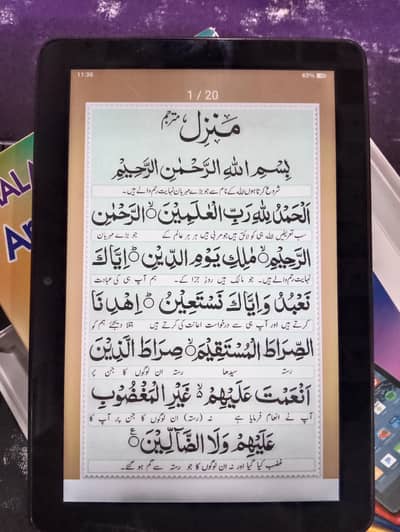 11:36
63%
1 / 20
مَنزِل مترجم
بِسْمِ اللهِ الرَّحْمٰنِ الرَّحِيْمِ
شروع کرتا ہوں اللہ کے نام سے جو بڑے مہربان نہایت رحم والے ہیں۔
اَلْحَمْدُ لِلّٰهِ رَبِّ الْعٰلَمِيْنَ ۙ الرَّحْمٰنِ
سب تعریفیں اللہ ہی کو لائق ہیں جو مربی ہیں ہر ہر عالم کے جو بڑے مہربان
الرَّحِيْمِ ۙ مٰلِكِ يَوْمِ الدِّيْنِ ؕ اِيَّاكَ
نہایت رحم والے ہیں۔ جو مالک ہیں روز جزا کے۔ ہم آپ ہی کی عبادت
نَعْبُدُ وَاِيَّاكَ نَسْتَعِيْنُ ؕ اِهْدِنَا
کرتے ہیں اور آپ ہی سے درخواست اعانت کی کرتے ہیں بتلا دیجئے ہم کو
الصِّرَاطَ الْمُسْتَقِيْمَ ۙ صِرَاطَ الَّذِيْنَ
رستہ سیدھا رستہ ان لوگوں کا جن پر
اَنْعَمْتَ عَلَيْهِمْ ۙ غَيْرِ الْمَغْضُوْبِ
آپ نے انعام فرمایا ہے نہ (رستہ) ان لوگوں کا جن پر آپ کا
عَلَيْهِمْ وَلَا الضَّآلِّيْنَ ۠
غضب کیا گیا اور نہ ان لوگوں کا جو رستہ سے گم ہو گئے۔